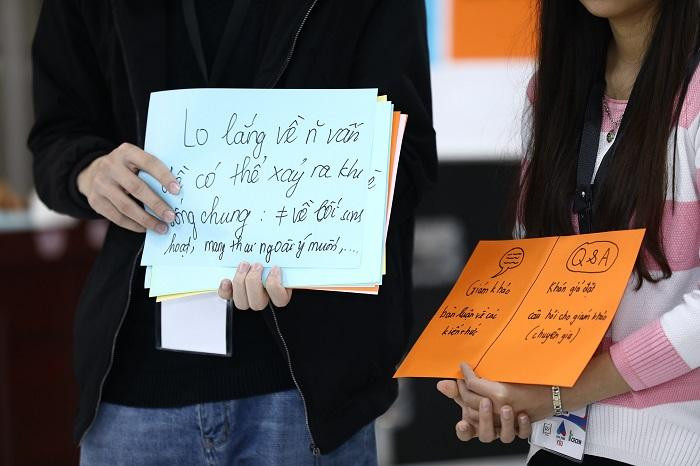 Lo lắng về ñ vấn
đề có thể xảy ra khi
sống chung : ≠ về lối sinh
hoạt, mang thai ngoài ý muốn, ....
Giám khảo
bàn luận về các
kiến thức
Q&A
Khán giả đặt
câu hỏi cho giám khảo
(chuyên gia)